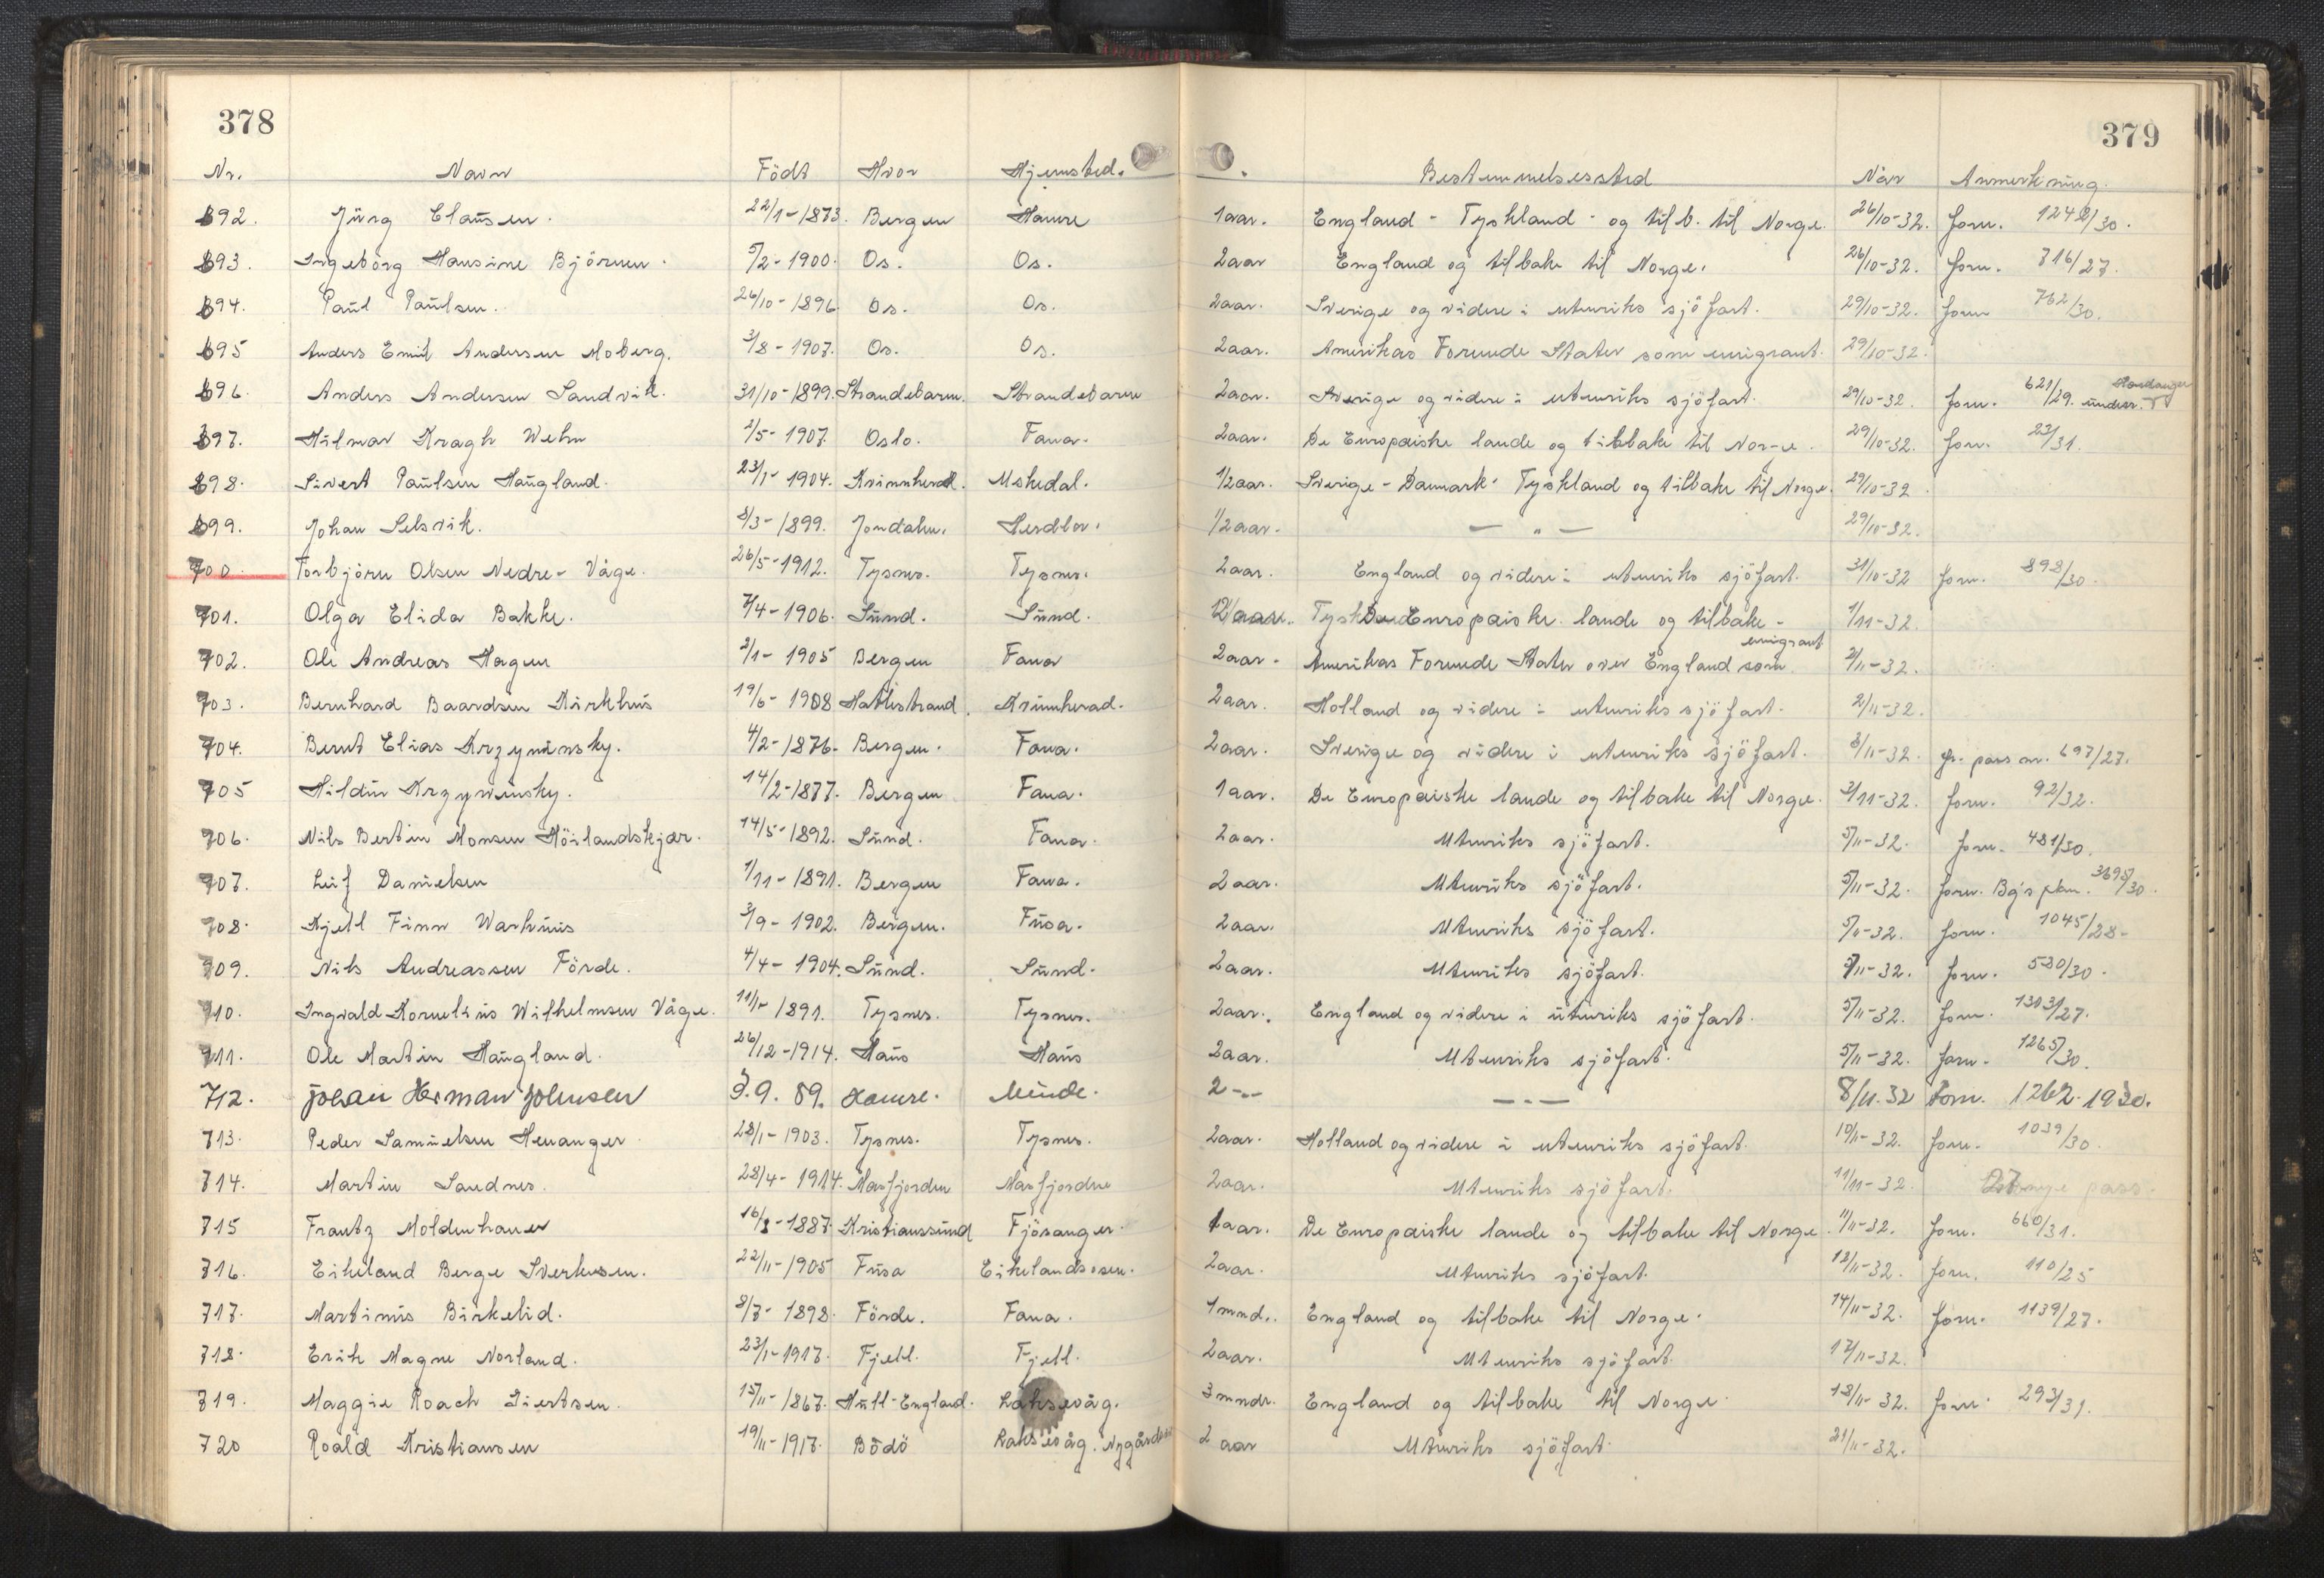 378
379
Nr. Navn Födt Hvor Hjemsted. Bestemmelsessted Når Anmerkning.
692. Jürg Clausen. 22/1-1873. Bergen Hamre 1aar. England - Tyskland - og tilb. til Norge. 26/10-32. forn. 1242/30.
693. Ingeborg Hansine Björnen. 5/2-1900. Os. Os. 2aar England og tilbake til Norge. 26/10-32. forn. 716/27.
694. Paul Paulsen. 26/10-1896. Os. Os. 2aar. Sverige og videre i utenriks sjöfart. 29/10-32. forn 762/30.
695 Anders Emil Andersen Moberg. 3/8-1907. Os. Os. 2aar. Amerikas Forende Stater som emigrant. 29/10-32.
696. Anders Andersen Sandvik. 31/10-1899. Strandebarm. Strandebarm 2aar. Sverige og videre i utenriks sjöfart. 29/10-32. forn. 621/29. Hardanger undesr.
697. Hilmar Kragh Wehn 2/5-1907. Oslo. Fana. 2aar. De Europæiske lande og tilbake til Nor-e. 29/10-32. forn. 23/31.
698. Sivert Paulsen Haugland. 23/1-1904. Kvinnherad. Uskedal. 1/2aar. Sverige - Danmark - Tyskland og tilbake til Norge. 29/10-32
699. Johan Selsvik. 8/3-1899. Jondalen. Herdlor. 1/2aar. — " — 29/10-32.
700. Torbjörn Olsen Nedre-Våge. 26/5-1912. Tysnes. Tysnes. 2aar. England og videre i utenriks sjöfart. 31/10-32 forn. 898/30.
701. Olga Elida Bakke. 7/4-1906. Sund. Sund. De Europæiske lande og tilbake - 1/11-32.
702. Ole Andreas Hagen 2/1-1905 Bergen Fana 2aar. Amerikas Forende Stater over England som emigrant 2/11-32.
703. Bernhard Baardsen Kirkhus 19/6-1908 Hatlestrand. Kvinnherad. 2aar. Holland og videre i utenriks sjöfart. 2/11-32.
704. Bernt Elias Krzyminsky. 4/2-1876. Bergen. Fana. 2aar. Sverige og videre i utenriks sjöfart. 3/11-32. fr. pass nr. 697/27.
705 Hildur Krzyvinsky. 14/2-1877. Bergen Fana. 1aar. De Europæiske lande og tilbake til Norge. 3/11-32. forn. 92/32.
706. Nils Bertin Monsen Höilandskjær. 14/5-1892. Sund. Fana. 2aar. Utenriks sjöfart. 5/11-32. forn. 481/30.
707. Leif Danielsen 1/11-1891. Bergen Fana. 2aar. Utenriks sjöfart. 5/11-32. forn. Bg's pkm. 3695/30.
708. Kjell Finn Warhuus 3/9-1902. Bergen. Fusa. 2aar. Utenriks sjöfart. 5/11-32. forn. 1045/28-
709. Nils Andreassen Förde. 4/4-1904. Sund. Sund. 2aar. Utenriks sjöfart. 5/11-32. forn. 530/30.
710. Ingvald Kornelius Wilhelmsen Våge. 11/1-1891. Tysnes. Tysnes. 2aar. England og videre i utenriks sjöfart. 5/11-32. forn. 1303/27.
711. Ole Martin Haugland. 26/12-1914. Haus Haus 2aar. Utenriks sjöfart. 5/11-32. forn. 1265/30.
712. Johan Herman Johnsen 3.9.89. Hamre. Minde. 2 -"- — " — 8/11.32 Forn. 1262.1930.
713. Peder Samuelsen Heuanger 28/1-1903. Tysnes. Tysnes. 2aar. Holland og videre i utenriks sjöfart. 10/11-32. forn. 1039/30.
714. Martin Sandnes. 28/4-1914. Masfjorden Masfjorden 2aar. Utenriks sjöfart. 11/11-32. pass.
715 Frantz Moldenhauer 16/8-1887. Kristianssund Fjösanger. 1aar. De Europæiske lande og tilbake til Norge. 11/11-32. forn. 660/31.
716. Eikeland Berge Sverkesen. 22/11-1905 Fusa Eikelandsosen. 2aar. Utenriks sjöfart. 12/11-32. forn. 110/25
717. Martinus Birkelid. 8/7-1898. Förde. Fana. 1mnd. England og tilbake til Norge. 14/11-32. forn. 1139/27.
718. Erik Magne Norland. 23/1-1917. Fjell. Fjell. 2aar. Utenriks sjöfart. 17/11-32.
719. Maggie Roach Diertsen. 15/11-1867. Hull-England. Laksevåg. 3mndr. England og tilbake til Norge. 18/11-32. forn 293/31.
720 Roald Kristiansen 19/11-1917. Bodö Laksevåg. 2 aar Utenriks sjöfart. 21/11-32.